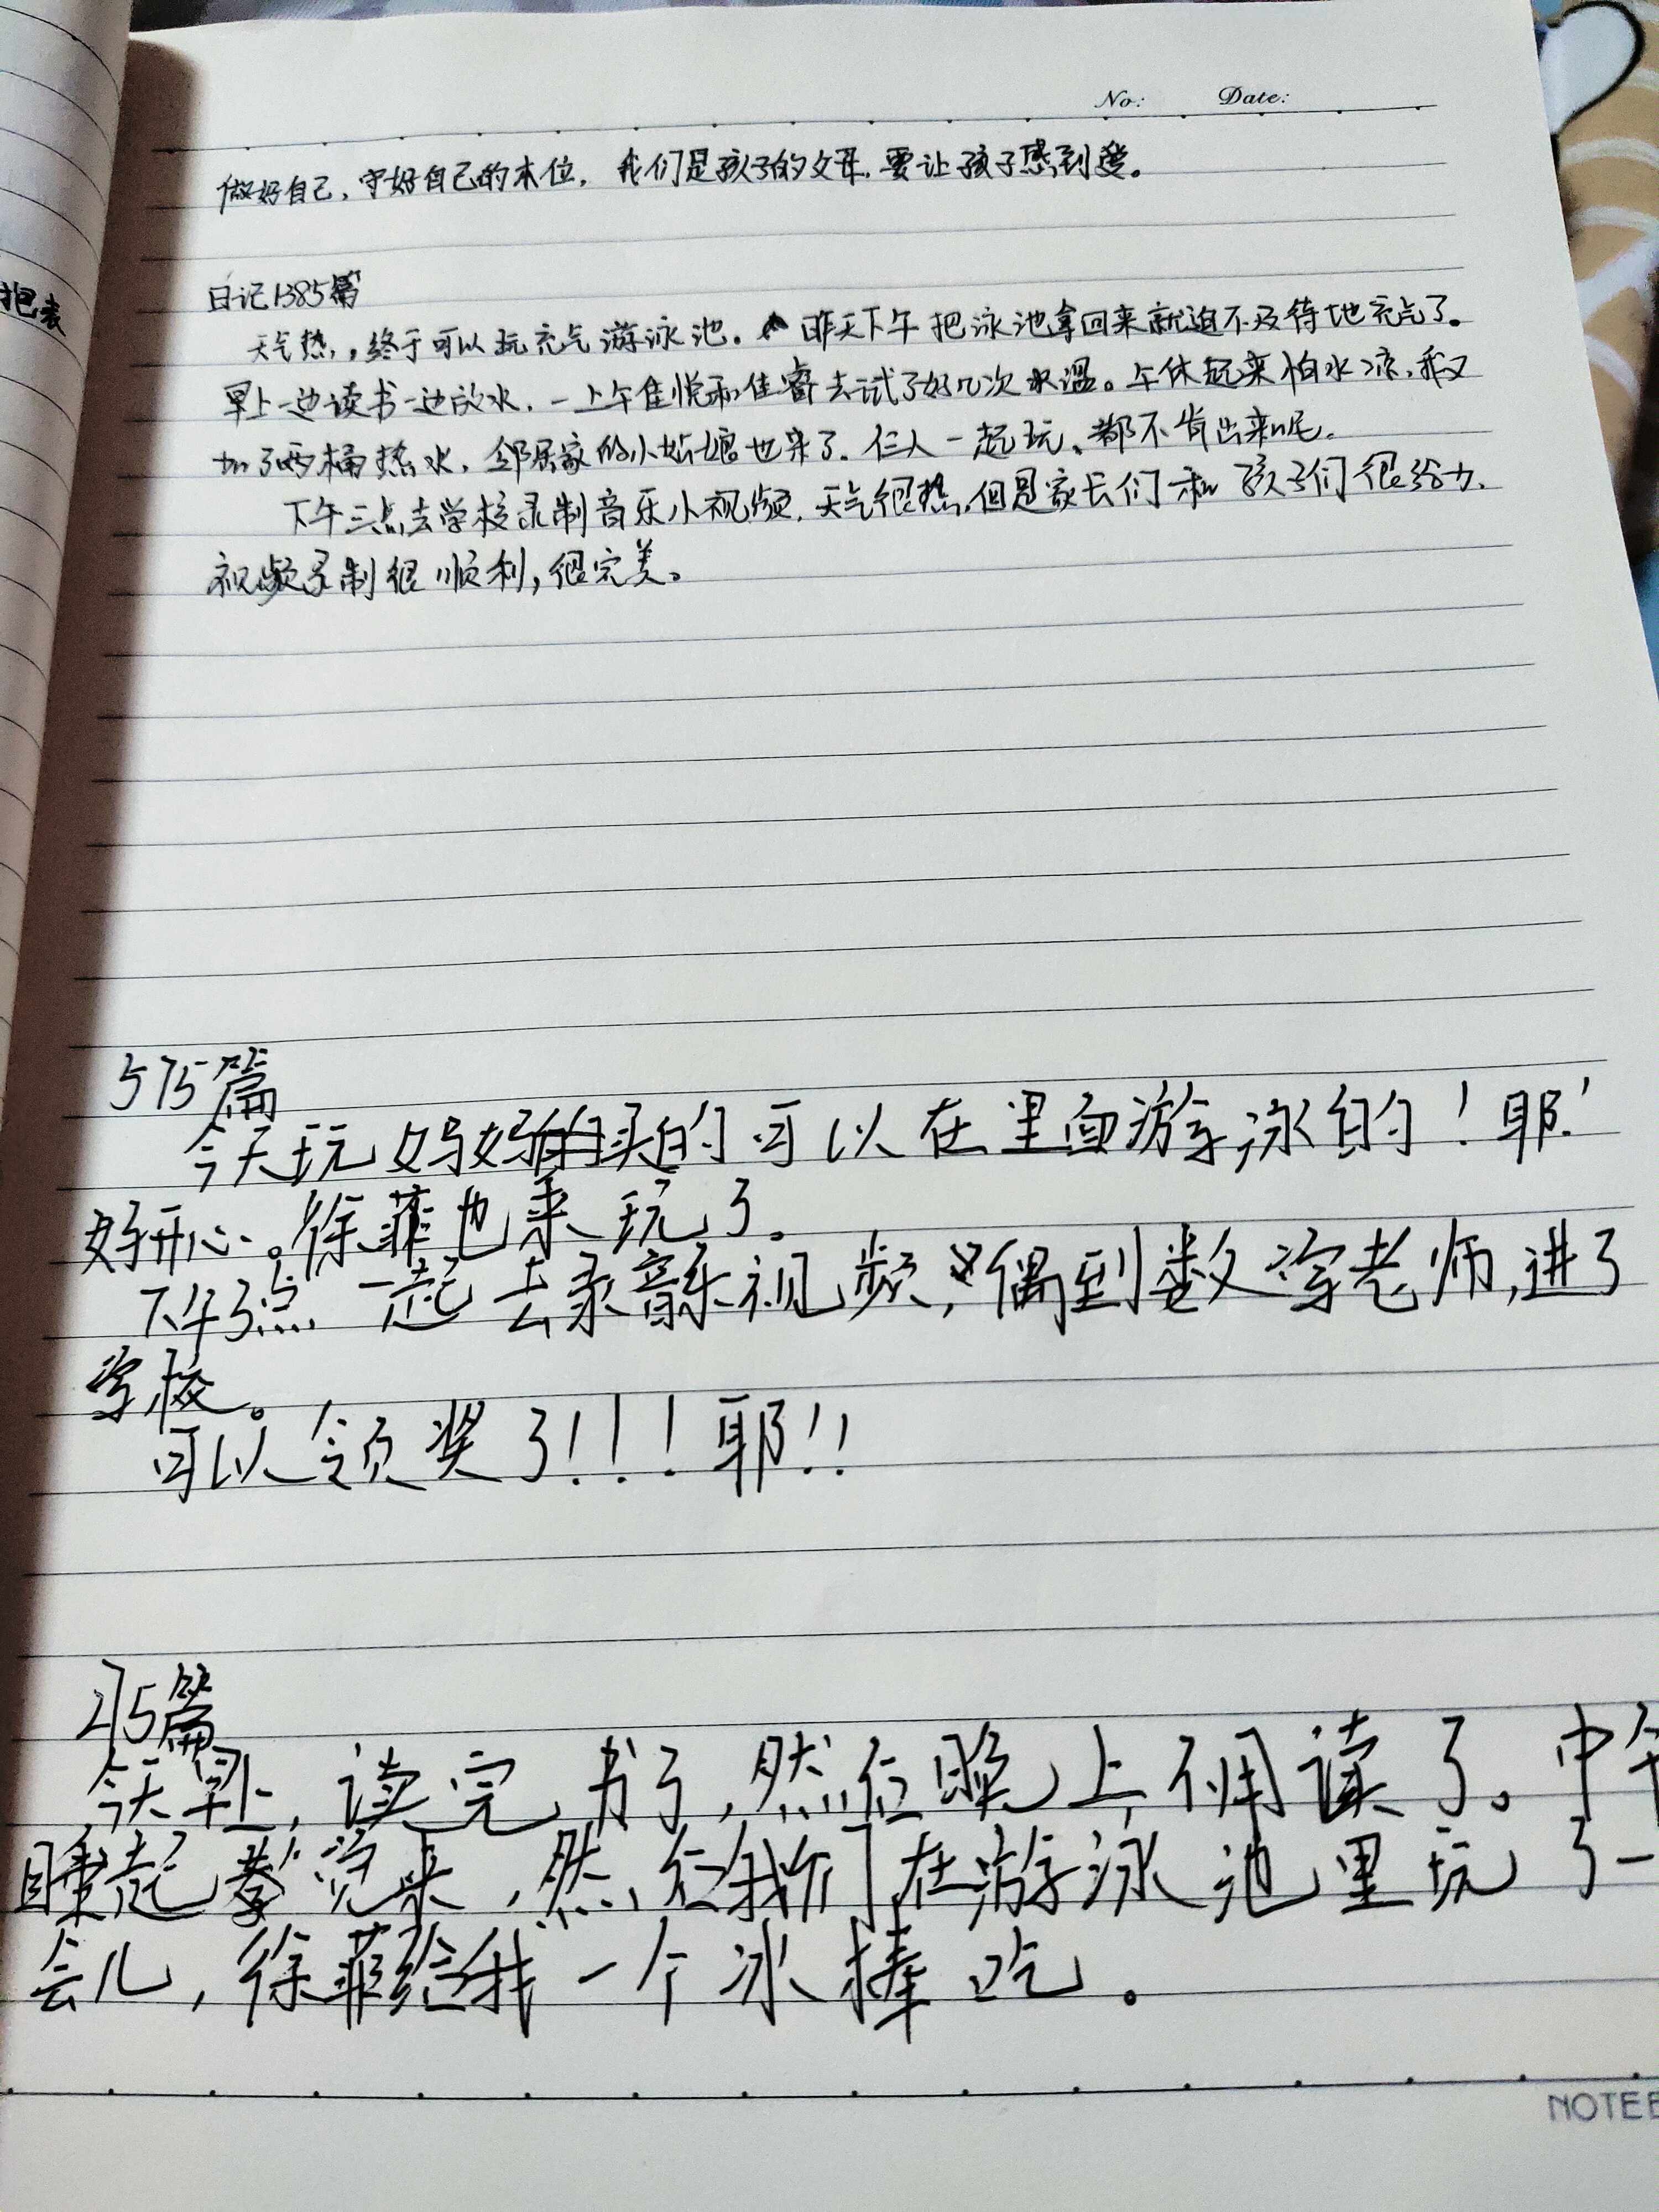 No: Date:
做好自己,守好自己的本位,我们是孩子的父母,要让孩子感到爱。
把表
日记1385篇
天气热,终于可以玩充气游泳池。昨天下午把泳池拿回来就迫不及待地充气了。
早上一边读书一边放水,一上午佳悦和佳睿去试了好几次水温。午休起来怕水凉,我又
加了两桶热水,邻居家的小姑娘也来了。仨人一起玩、都不肯出来呢。
下午三点去学校录制音乐小视频,天气很热,但是家长们和孩子们很给力,
视频录制很顺利,很完美。
575篇
今天玩妈妈买的可以在里面游泳的!耶!
好开心。徐菲也来玩了。
下午3点一起去录音乐视频,偶到数学老师,进了
学校。
可以领奖了!!!耶!!
275篇
今天早上,读完书了,然后晚上不用读了。中午
睡起觉来,然后我们在游泳池里玩了一
会儿,徐菲给我一个冰棒吃。
NOTEB